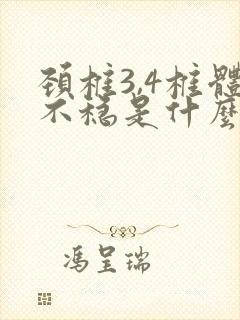 頚椎3,4椎體
不穩是什麼
馮呈瑞